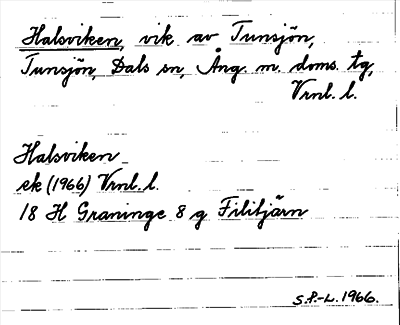 Halsviken, vik av Tunsjön,
Tunsjön, Dals sn, Ång. m. doms. tg,
Vrnl. l.
Halsviken
ek (1966) Vrnl. l.
18 H Graninge 8 g Filitjärn
S.P.-L. 1966.